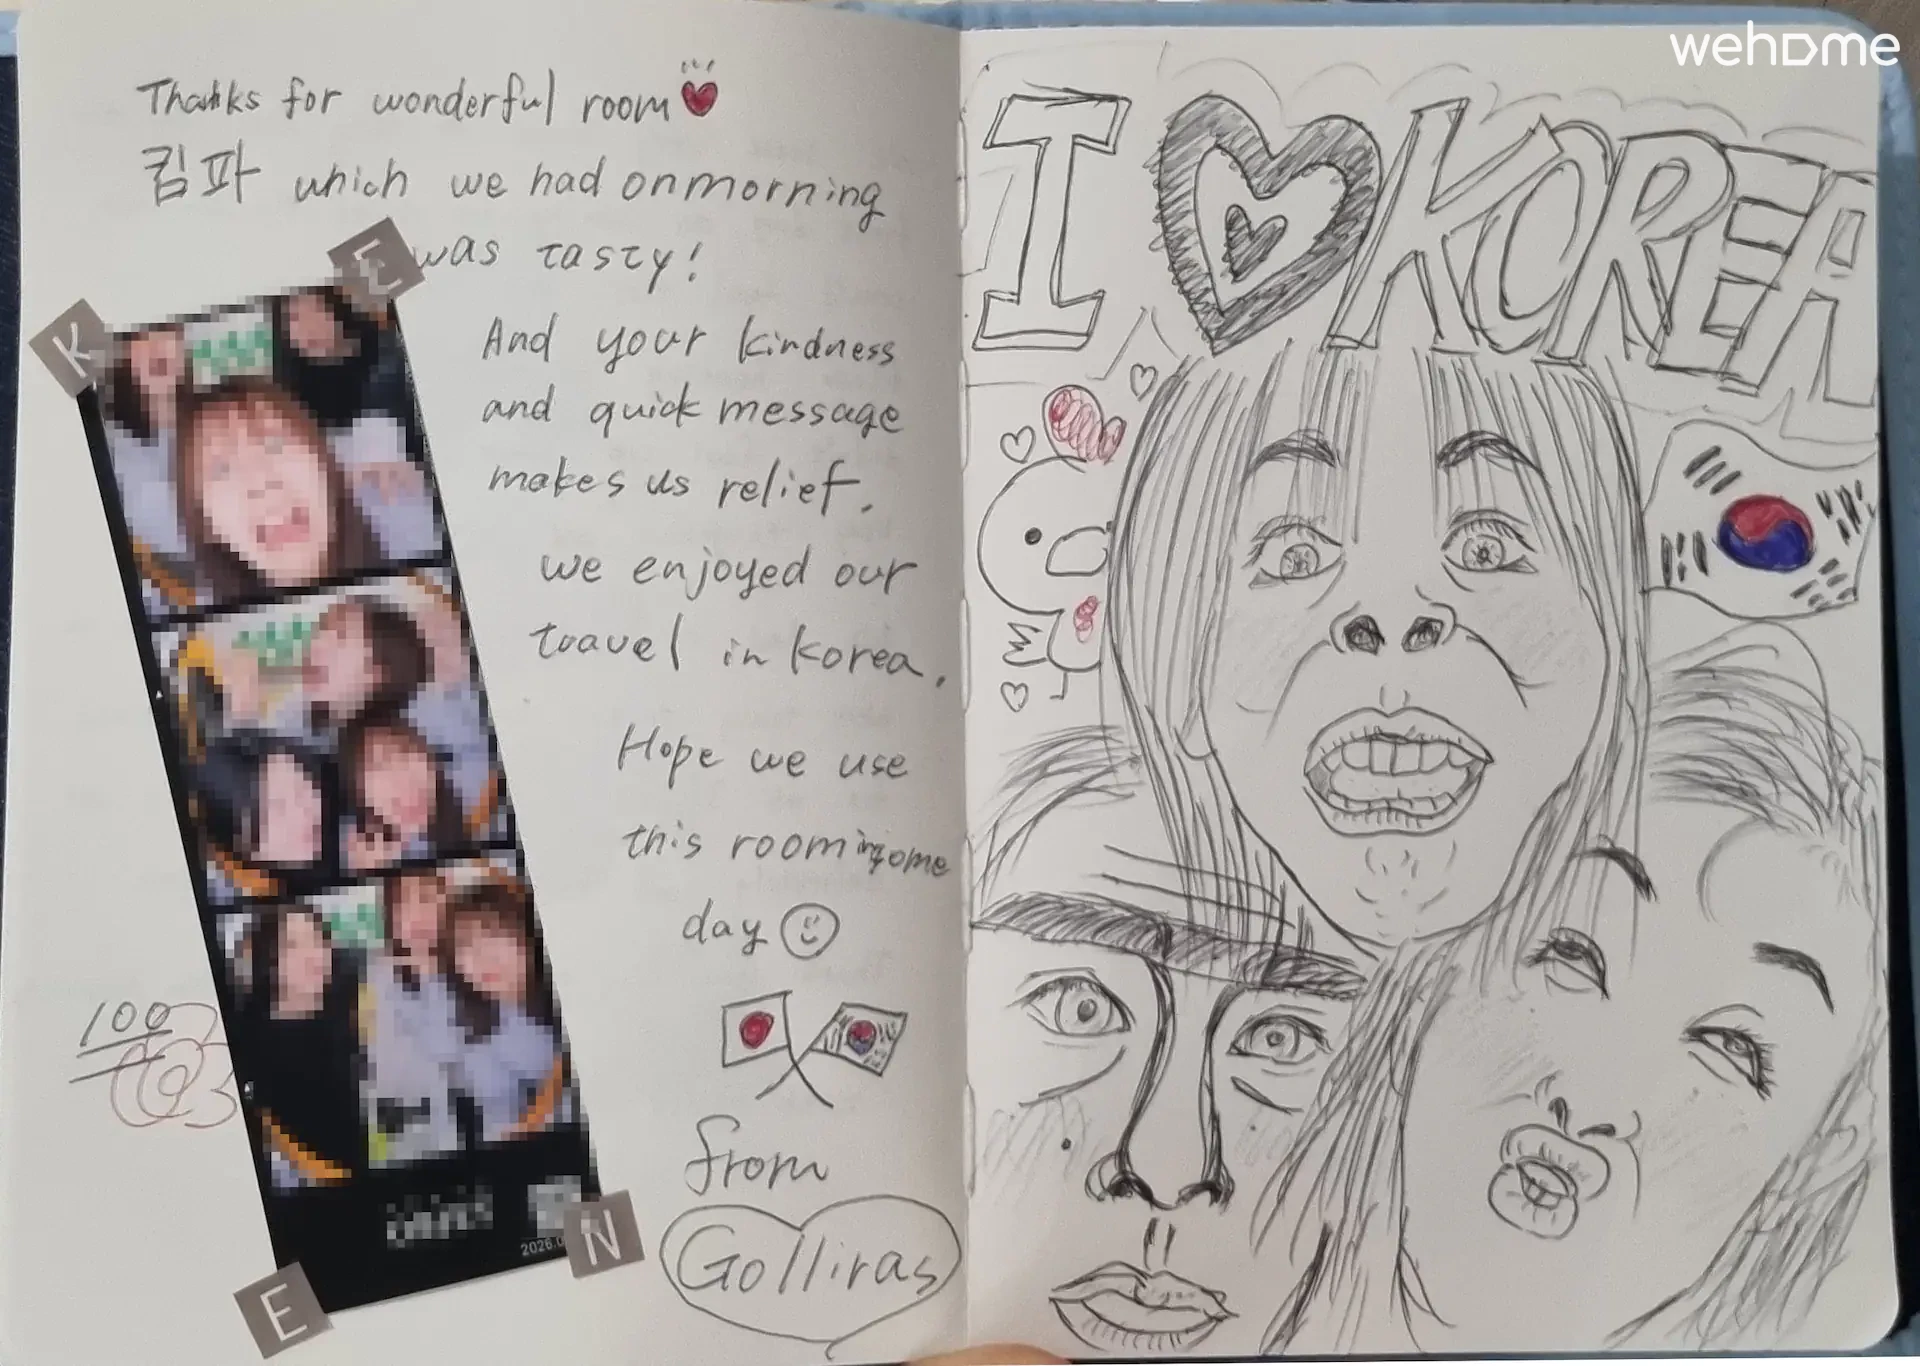 wehome
Thanks for wonderful room
킴파 which we had on morning
was tasty!
And your kindness
and quick message
makes us relief.
we enjoyed our
toavel in Korea.
Hope we use
this room in some
day
from
Golliras
100
K
E
E
N
2026.0
I KOREA